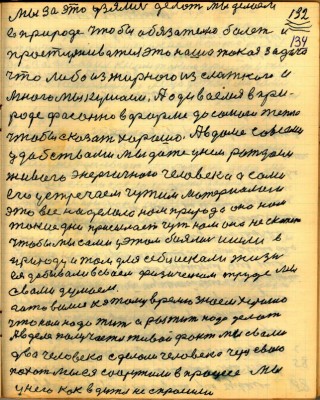 мы за это взялись делать мы делаем 132
в природе чтобы обязательно болеть и 134
простуживаться это наша такая задача
что либо из жирного из сладкого и
много мы кушаем. А одеваемся в при-
роде фасонно в форме до самого тепла
чтобы сказать хорошо. А в доме со всеми
удобствами мы даже умеем рождать
живого энергичного человека а сами
его встречаем чужим материалом
это все наделала нам природа она нам
такие дни присылает чут нам она не скажет
чтобы мы сами у этом боялись шли в
природу и там для себя искали жизни
ея добивали своим физическим трудом мы
своим думаем.
к этому время знаем хорошо
что нам надо жить а работу надо делать
А в деле получается живой факт мы свели
два человека сделали человека через свою
похоть мы ся сократили в процессе мы
у него как в дитя не спросили